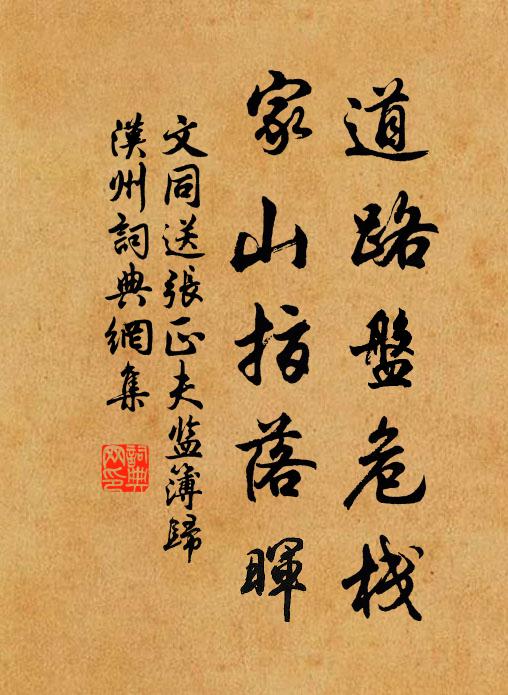 道路盤危栈
家山指落暉
文同送張正夫监簿歸
漢州詞典網集
詞典网印